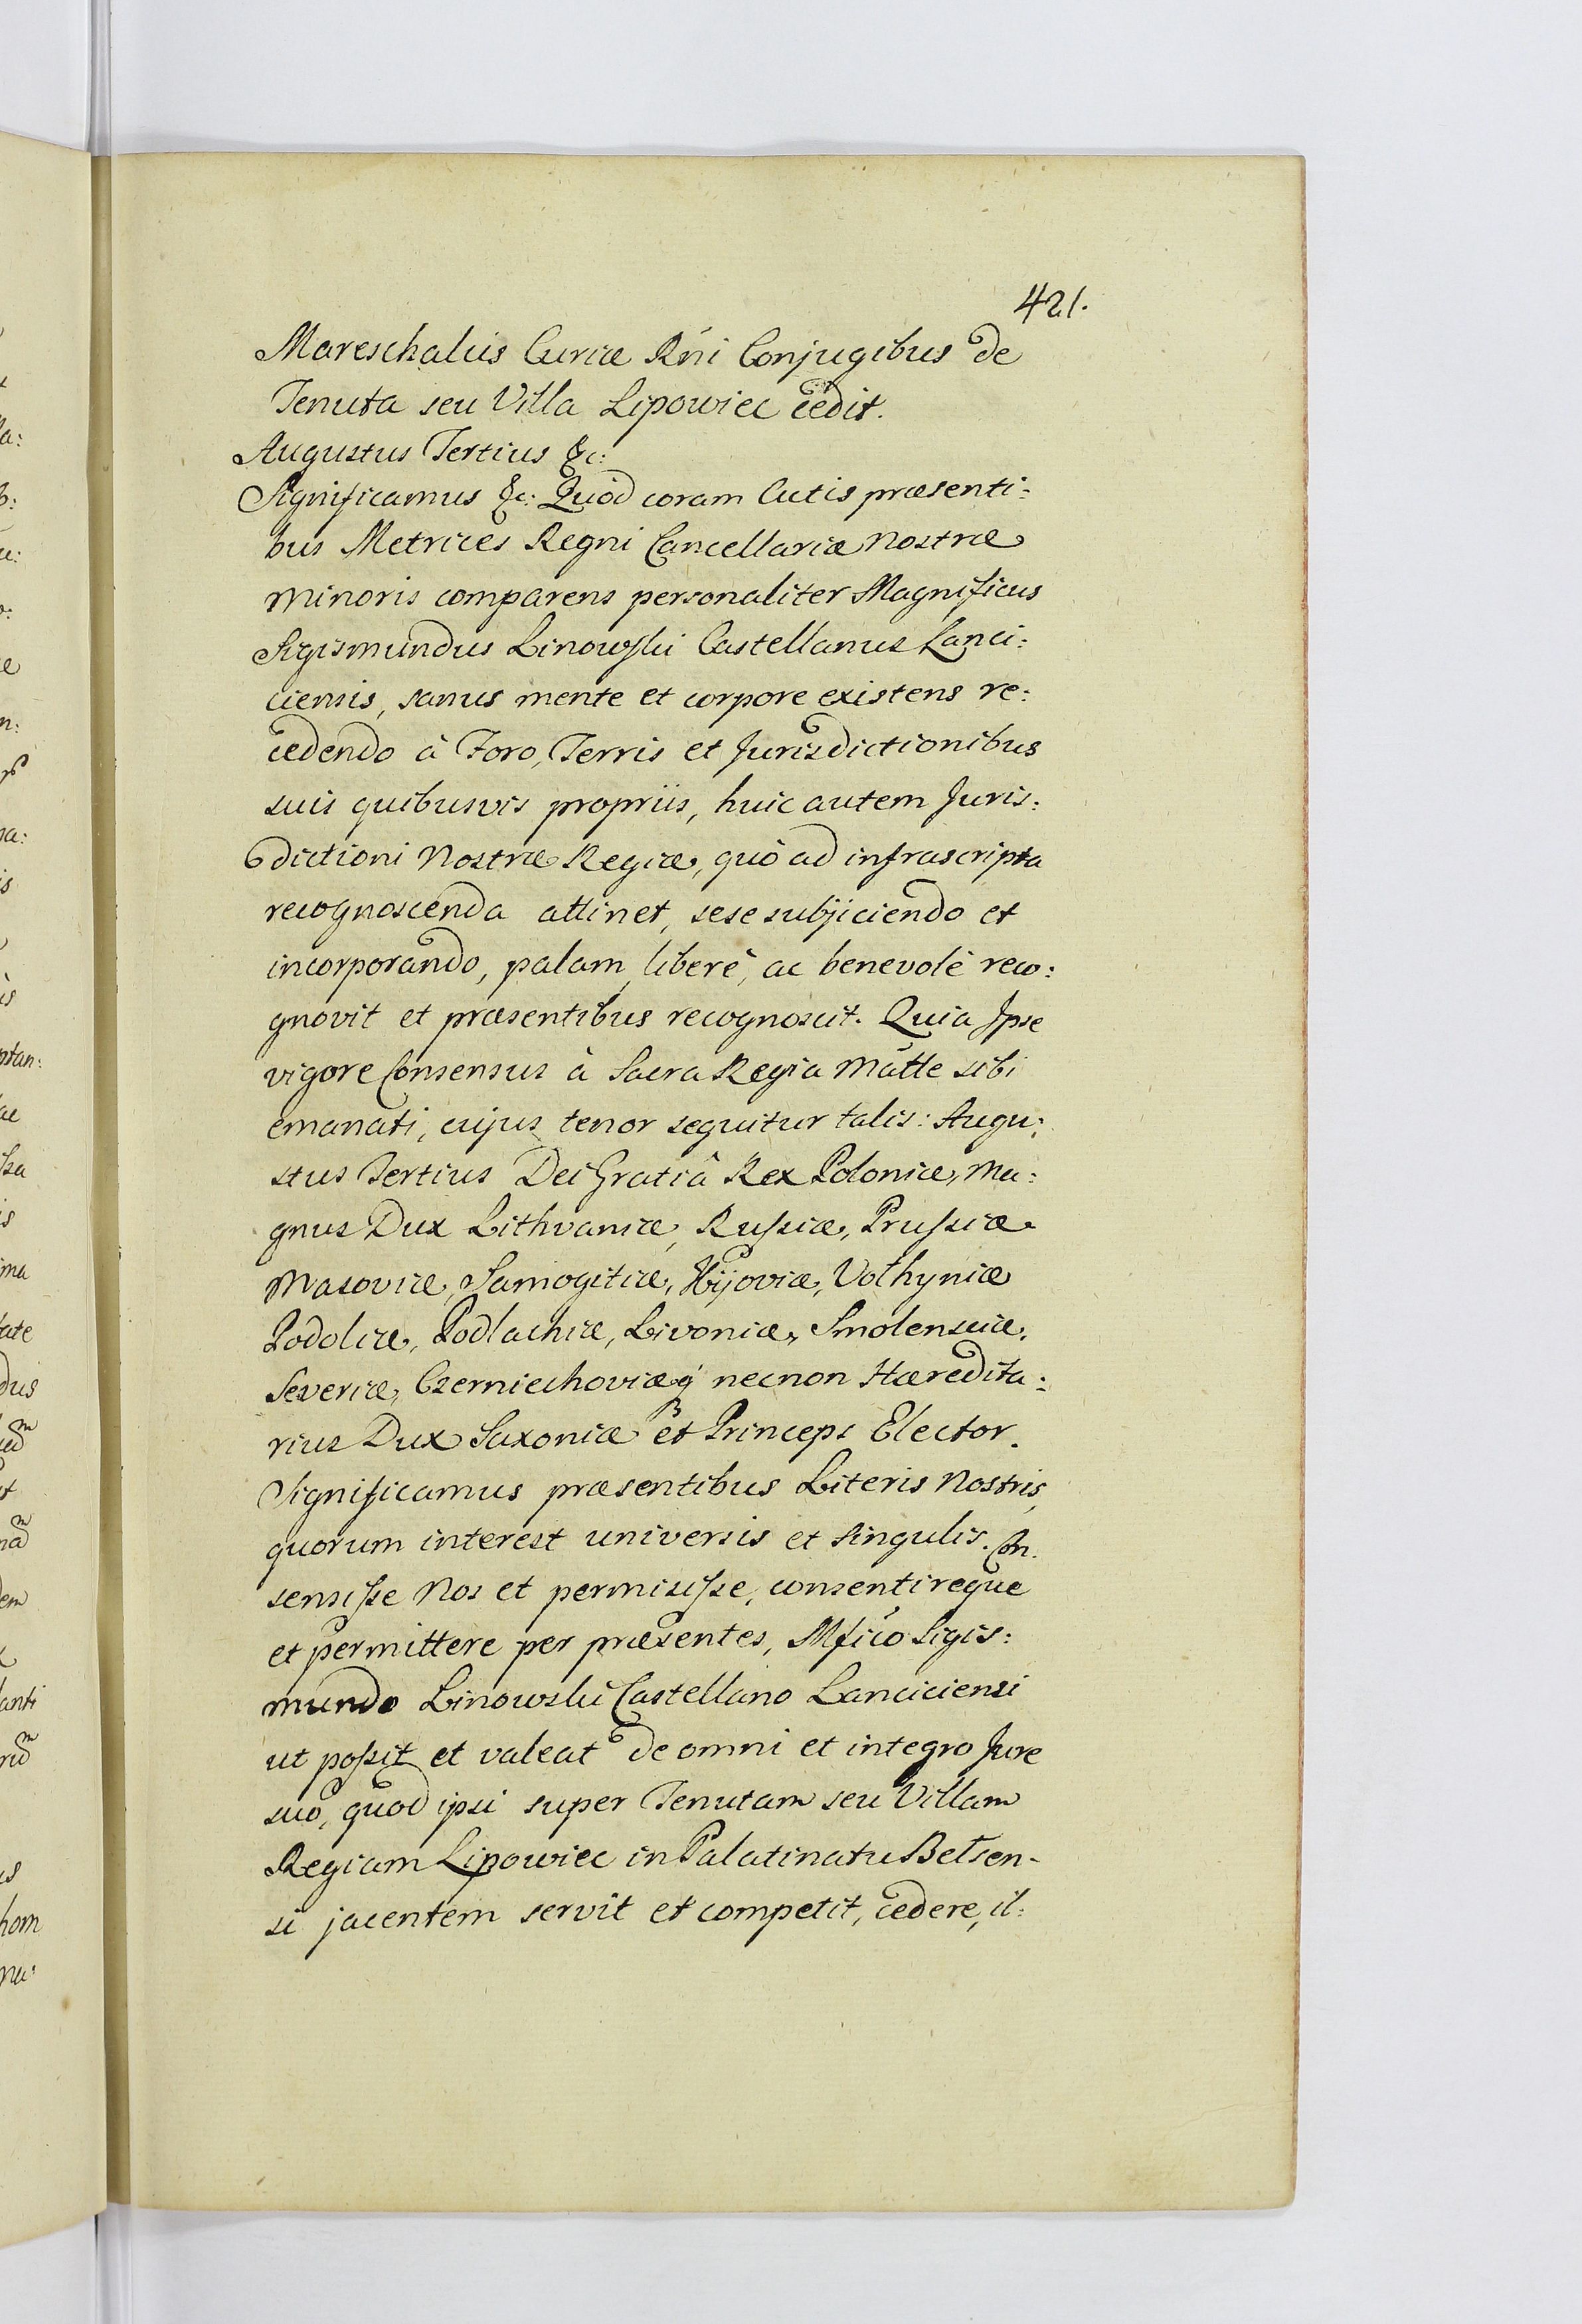 421.
Mareschalcis Curiæ Rńi Conjugibus de
Tenuta seu Villa Lipowiec cedit.
Augustus Tertius &c:
Significamus &c: Quòd coram Actis præsenti:
bus Metrices Regni Cancellariæ Nostræ
Minoris comparens personaliter Magnificus
Sigismundus Linowski Castellanus Lanci:
ciensis, sanus mente et corpore existens re:
cedendo à Foro, Terris et Jurisdictionibus
suis quibusvis propriis, huic autem Juris:
dictioni Nostræ Regiæ, quò ad infrascripta
recognoscenda attinet, sese subjiciendo et
incorporando, palam, liberè, ac benevolè reco:
gnovit et præsentibus recognoscit. Quia Ipse
vigore Consensus à Sacra Regia Matte sibi
emanati, cujus tenor sequitur talis: Augu:
stus Tertius Dei Gratiâ Rex Poloniæ, Ma:
gnus Dux Lithvaniæ, Russiæ, Prussiæ
Masoviæ, Samogitiæ, Kijoviæ, Volhyniæ
Podoliæ, Podlachiæ, Livoniæ, Smolensciæ,
Severiæ, Czerniechoviæq́ necnon Hæredita:
rius Dux Saxoniæ et Princeps Elector.
Significamus præsentibus Literis Nostris,
quorum interest universis et singulis. Con.
sensisse Nos et permisisse, consentireque
et permittere per præsentes, Mfico Sigis:
mundo Linowski Castellano Lanciciensi
ut possit et valeat de omni et integro Jure
suo, quod ipsi super Tenutam seu Villam
Regiam Lipowiec in Palatinatu Belsen-
si jacentem servit et competit, cedere, il: